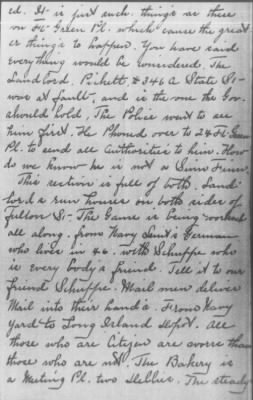 ed. It is just such things as these
on Ft Green Pl. which cause the great
er things to happen. You have said
everything would be considered. The
Landlord. Pickett, #346 A State St-
was at fault, and is the one the Gov.
should hold, The Police went to see
him first. He Phoned over to 24 Ft-Green
Pl. to send all Authorities to him. How
do we know he is not a Sinn Feiner.
This section is full of both. Land-
lords run houses on both sides of
fulton St- The Game is being worked
all along. from Navy Saint's German
who lives in 46. with Schuppe who
is every body's friend. Tell it to our
friend Schuppe. Mail men deliver
Mail into their hand's. From Navy
yard to Long Island Depot. All
those who are Citizen are worse than
those who are not. The Bakery is
a Meeting Pl. two Hellies. The steady